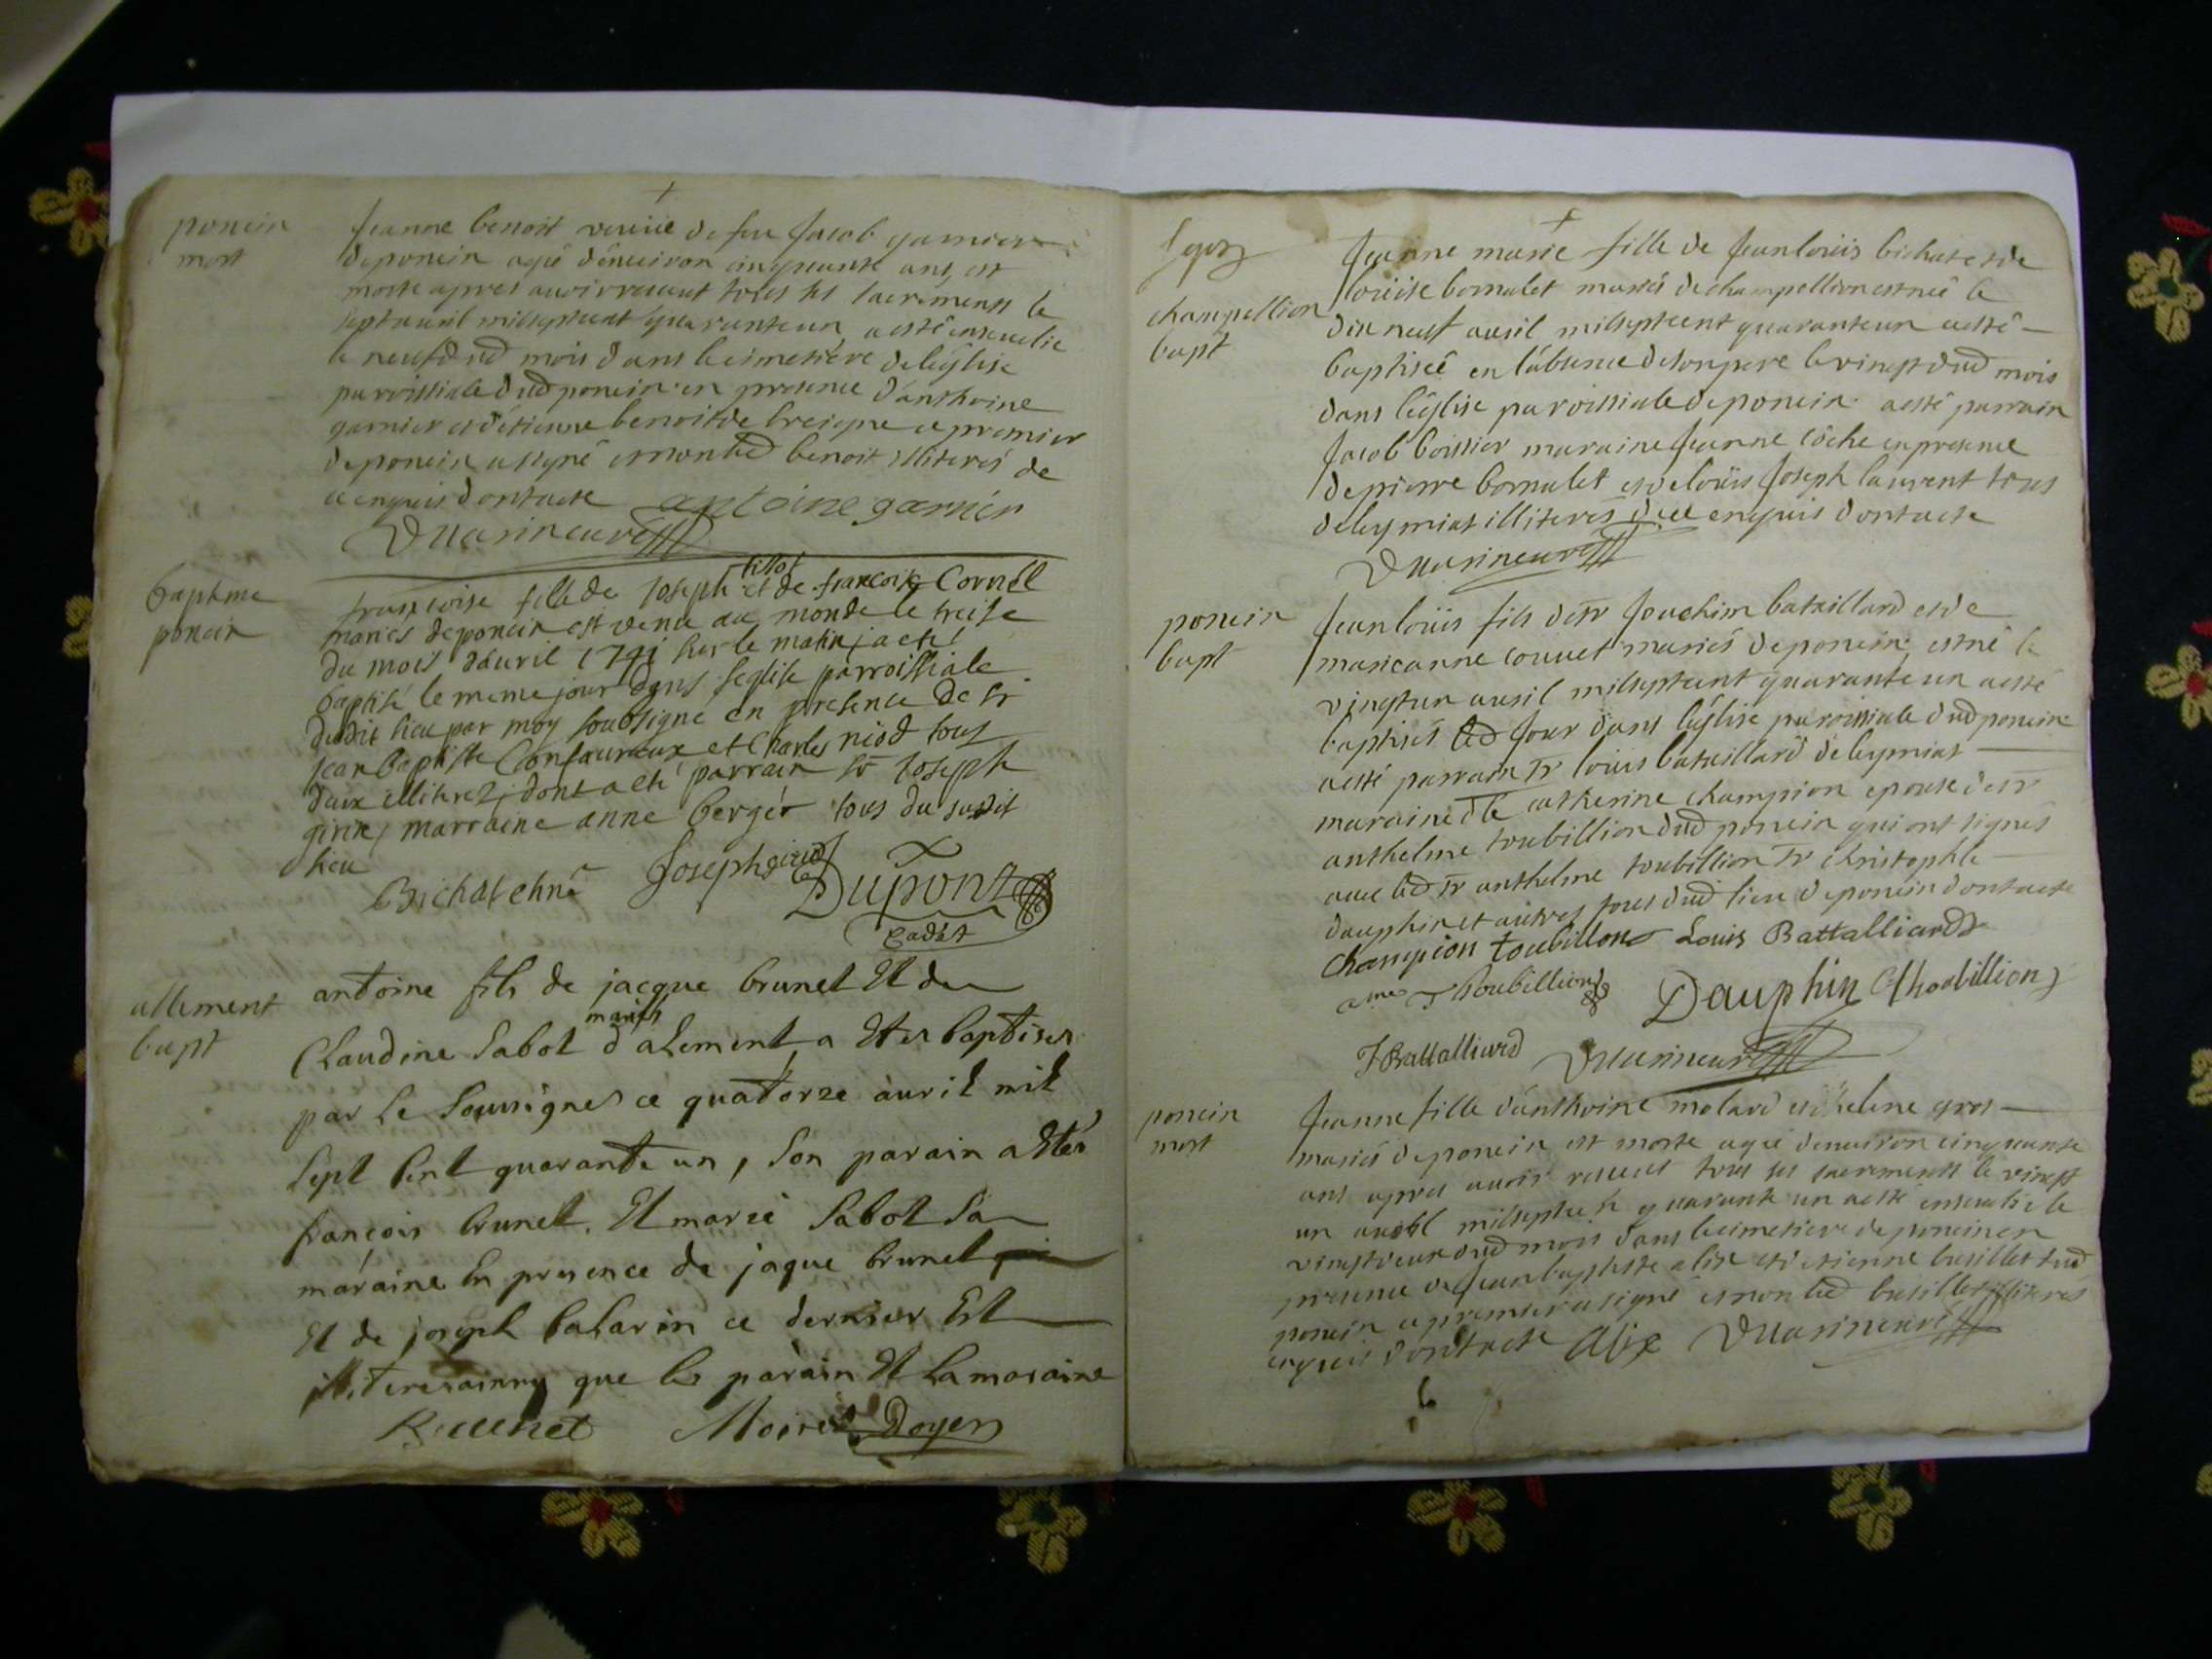 poncin
mort
Jeanne benoit veuve de feu Jacob garnier
de poncin agé d'enuiron cinquante ans, est
morte apres auoir receut tous ses sacrements le
sept auril milseptcent quaranteun, a esté enseuelie
le neuf dud mois dans le cimetiere de leglise
paroissiale dud poncin en presence d'anthoine
garnier et d'etienne benoit de breigne ce premier
de poncin a signé et non led benoit illiteré de
ce enquis dont acte antoine garnier
baptme
poncin
francoise fille de Joseph billot et de francoise Cornél
mariés de poncin est venu au monde le treise
du mois d'auril 1741 sur le matin, a eté
baptisé le meme jour dans l'eglise parroissiale
dudit lieu par moy soubsigné en presence de sr
jean baptiste Confaureaux et Charles niod tous
deux illiterez, dont a eté parrain sr Joseph
girin, marraine anne berger tous du sudit
lieu
Bichat Joseph girin Dupont
Cadet
allement
bapt
antoine fils de jacque brunet Et de
Claudine Sabot mariés d'alement a Etes baptises
par le Sousignes ce quatorze auril mil
Sept Cent quarante un, Son parain a Etes
francois brunet. Et marie Sabot Sa
maraine En presence de jaque brunet
Et de joseph Balarin ce dernier Est
illiteres ainny que les parain Et La maraine
Brunet Moiret Doyen
champellion
bapt
Jeanne marie fille de Jean louis bichat et de
louise bornalet mariés de champellion est néé le
dix neuf auril milseptcent quaranteun a esté
baptiséé en l'absence de son pere le vingt dud mois
dans l'eglise paroissiale de poncin a esté parrain
Jacob boissier maraine Jeanne côche en presence
de pierre bornalet et de loüis Joseph laurent tous
de leymiat illiterés de ce enquis dont acte
poncin
bapt
Jean loüis fils de sr Joachim bataillard et de
marieanne couuet mariés de poncin, est né le
vingtun auril milseptcent quarante un a esté
baptisés led Jour dans l'eglise paroissiale dud poncin
a esté parrain sr loüis bataillard de leymiat
maraine dlle catherine champion epouse de sr
anthelme toubillion dud poncin qui ont signés
auec led sr anthelme toubillion sr christophle
dauphin et autres tous dud lieu de poncin dont acte
Champion toubillon Louis Battalliard
Thoubillion Dauphin Choobillion
J Battalliard
poncin
mort
Jeanne fille d'anthoine molard et helene gros
mariés de poncin est morte agé d'enuiron cinquante
ans apres auoir receut tous ses sacrements le vingt
un auril milseptcent quarante un a esté enseuelie le
vingtdeux dud mois dans le cimetiere de poncin en
presence de Jean baptiste alix et d'etienne busillet dud
poncin ce premier a signé et non led busillet illiterés
enquis dont acte Alix